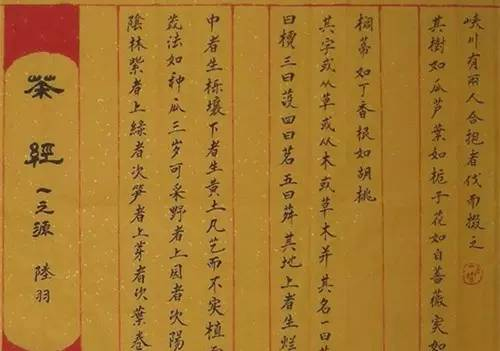 峡川有兩人合抱者伐而掇之
其樹如瓜芦葉如栀子花如白蔷薇实如
榈蒂如丁香根如胡桃
其字或从草或从木或草木并其名一曰
曰槚三曰蔎四曰茗五曰荈其地上者生烂
中者生栎壤下者生黄土凡艺而不实植
茂法如神瓜三岁可采野者上园者次陽
陰林紫者上緑者次笋者上芽者次葉卷
茶經
一之源 陸羽